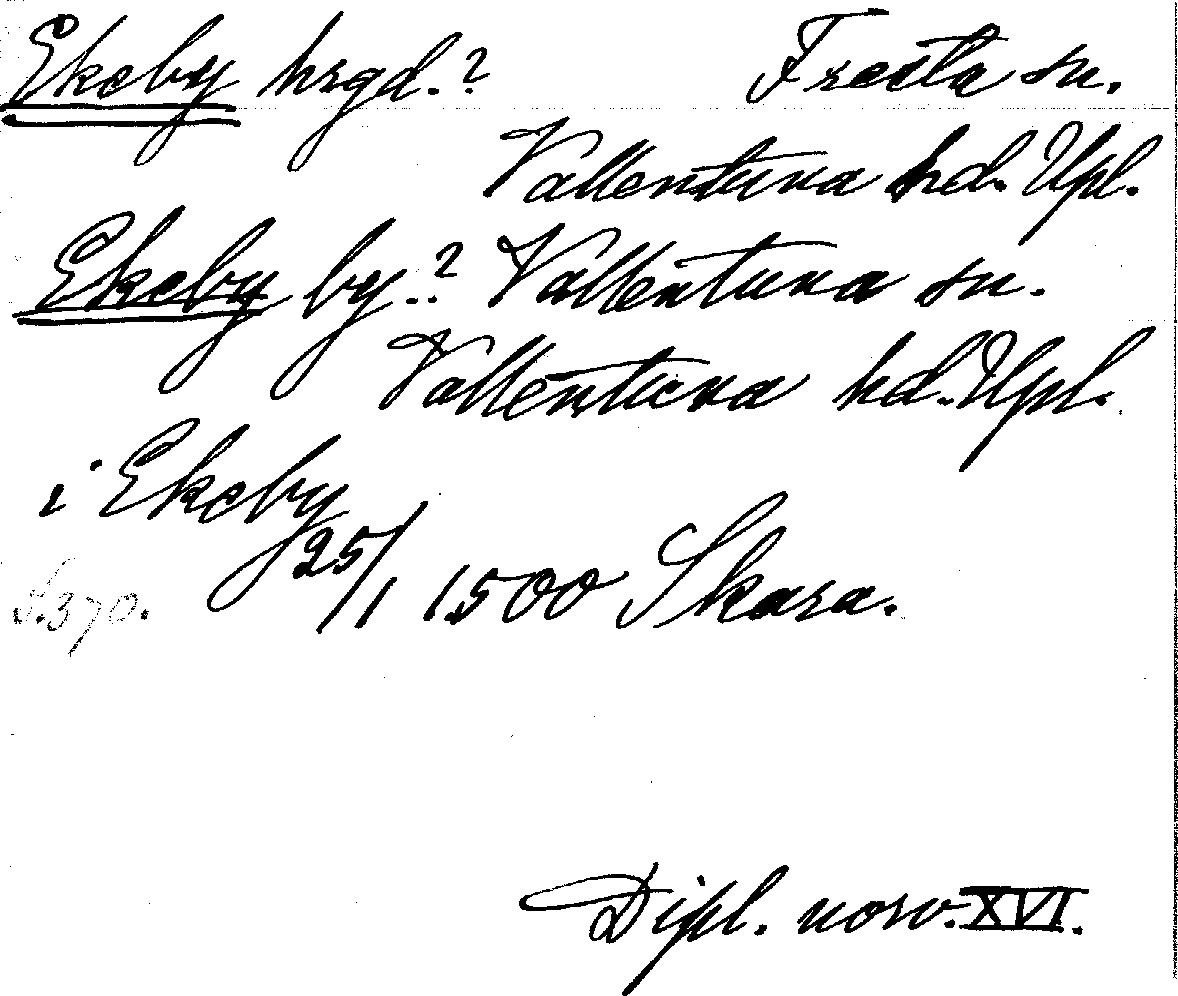 Ekeby hrgd.? Fresta sn.
Vallentuna hd. Upl.
Ekeby by.? Vallentuna sn.
Vallentuna hd. Upl.
i Ekeby
25/1 1500 Skara.
S. 370.
Dipl. norv. XVI.